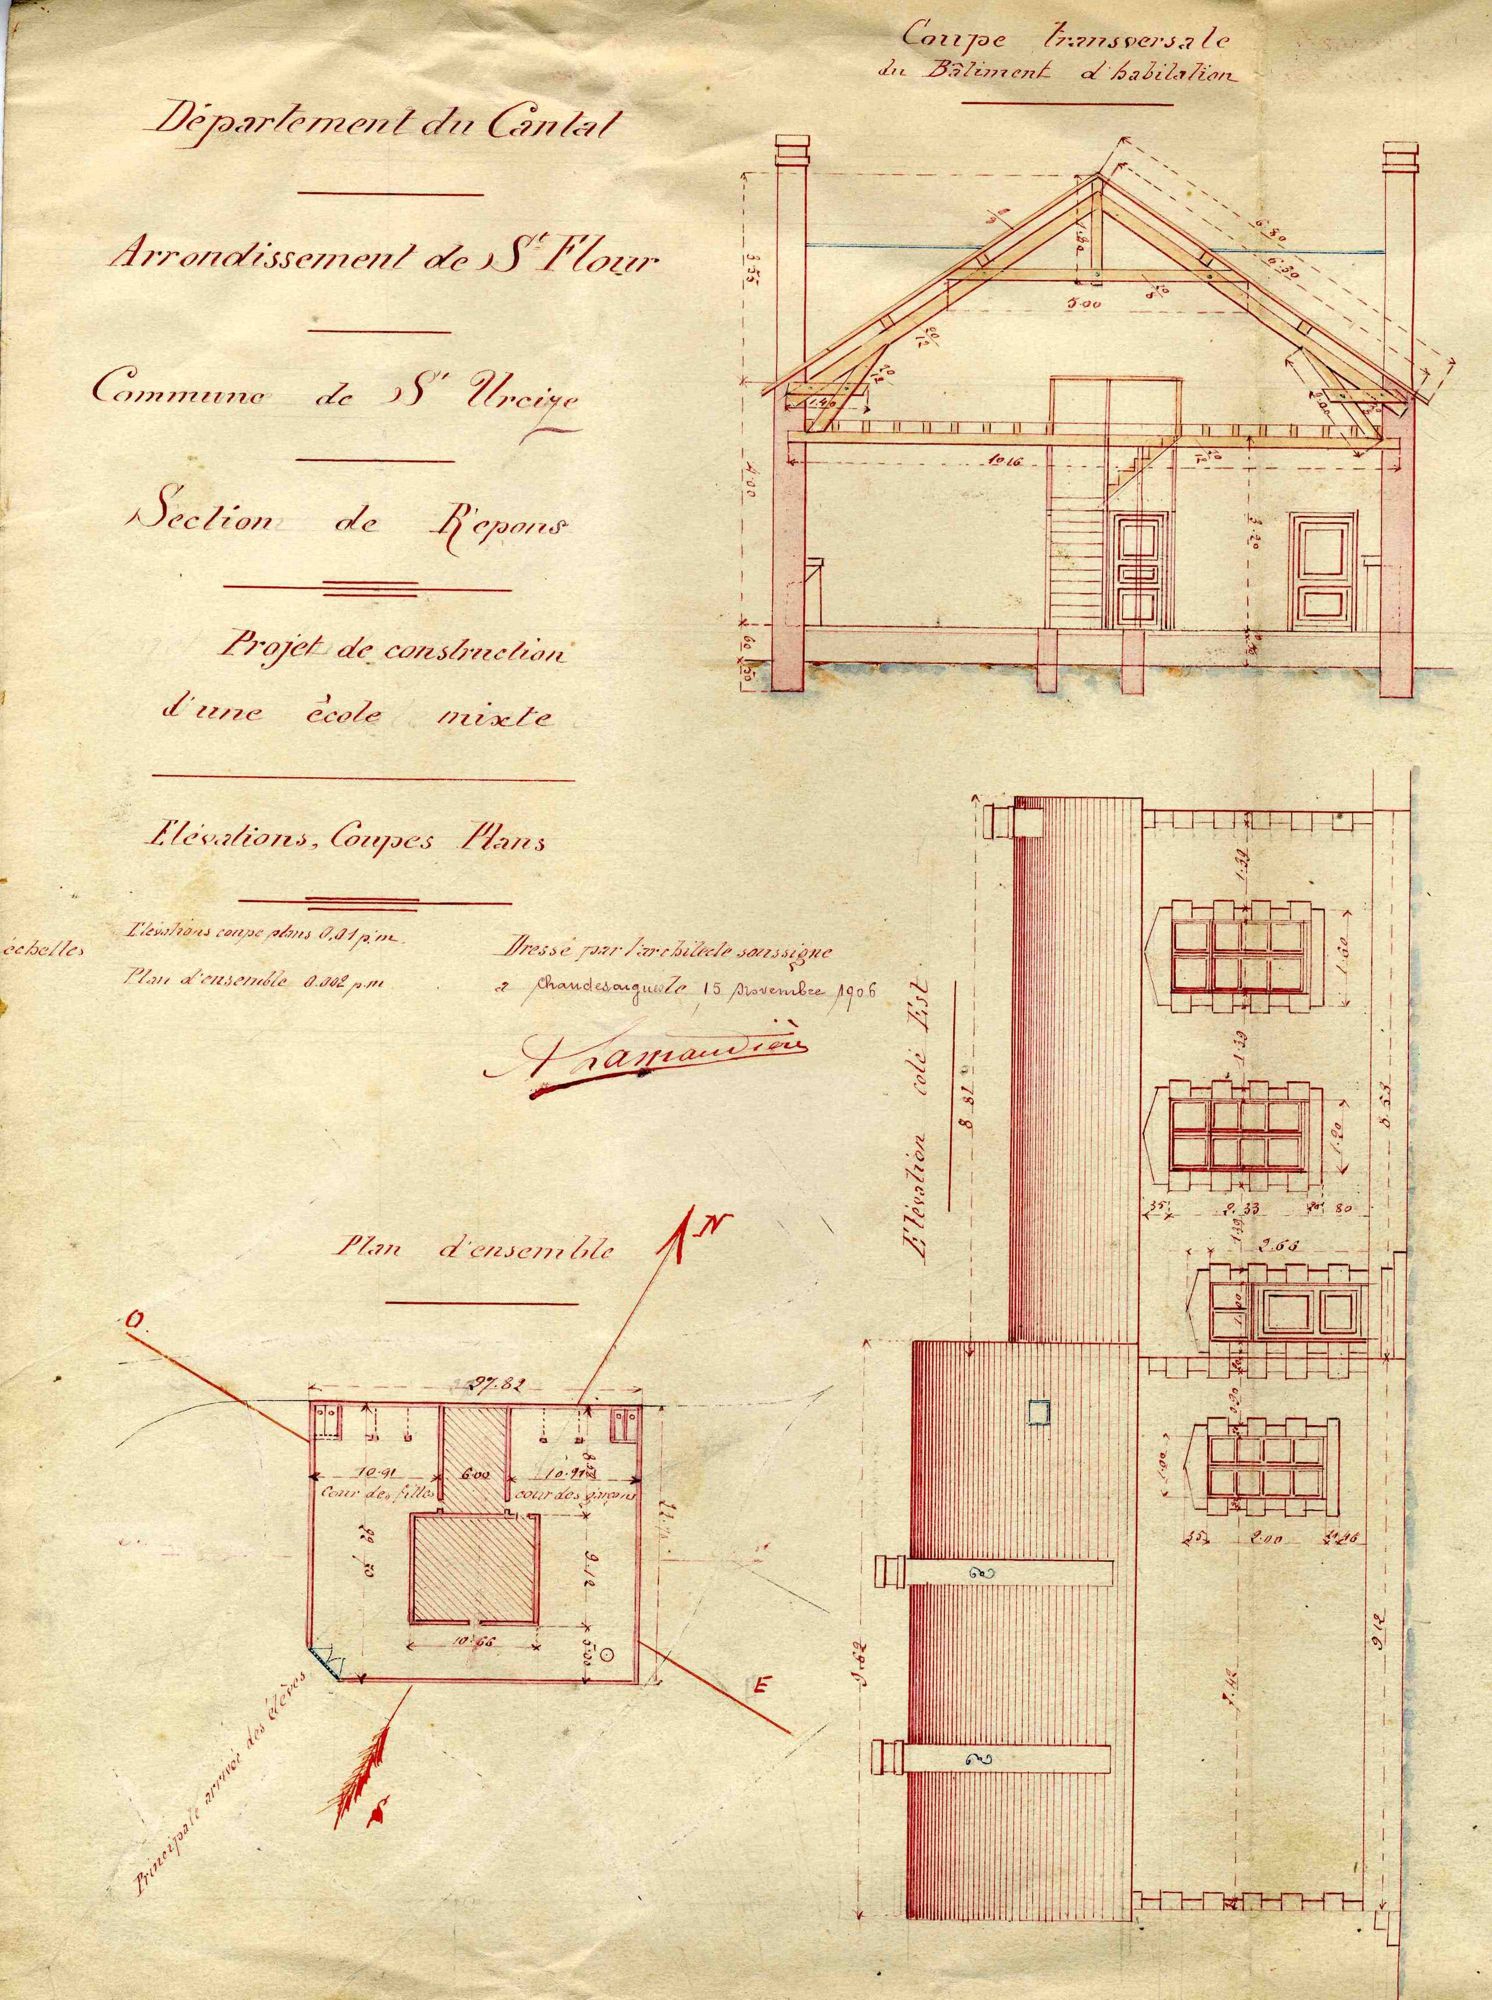 Coupe transversale
du Bâtiment d'habitation
Département du Cantal
Arrondissement de St Flour
Commune de St Urcize
Section de Repons
Projet de construction
d'une école mixte
Elévations, Coupes Plans
échelles
Elévations coupe plans 0,01 p.m.
Plan d'ensemble 0.002 p.m
Dressé par l'architecte soussigné
a Chaudesaigues le 15 Novembre 1906
3.55
4.00
60
50
1.80
5.00
6.80
6.30
20/12
1.40
2.00
10.16
3.20
Elévation coté Est
8.81
1.39
1.20
1.39
1.20
35
2.33
80
1.39
2.66
1.00
8.53
1.00
35
2.00
9.62
7.42
9.12
Plan d'ensemble
N
O
E
S
27.82
10.91
6.00
10.91
Cour des filles
cour des garçons
9.12
5.00
10.66
Principale arrivée des élèves